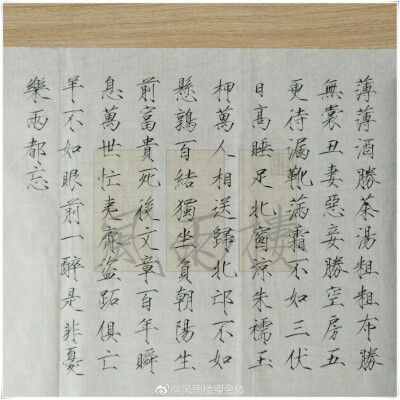 薄薄酒勝茶湯粗粗布勝
無裳丑妻惡妾勝空房五
更待漏靴滿霜不如三伏
日高睡足北窗涼朱襦玉
柙萬人相送歸北邙不如
懸鶉百結獨坐負朝陽生
前富貴死後文章百年瞬
息萬世忙夷齊盜跖俱亡
羊不如眼前一醉是非憂
樂兩都忘
風雨樓
@风雨楼瘦金体